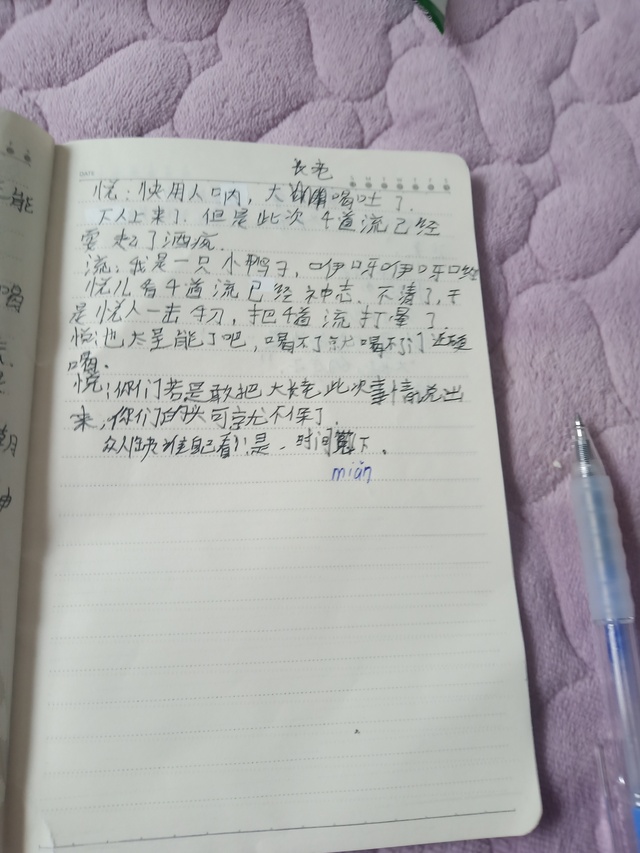 长老
悦:快用人口内,大喝吐了.
下人上来了.但是此次4道流已经
耍起了酒疯.
流:我是一只小鸭子,咿呀咿呀
悦儿看4道流已经神志.不清了,于
是悦人一击4刀,把4道流打晕了.
悦:也太呈能了吧,喝不了就喝不了
喝.
悦:你们若是敢把大长老此次事情说出
来,你们的头可就不保了.
众人快谁自己看!是.时间下.
miǎn